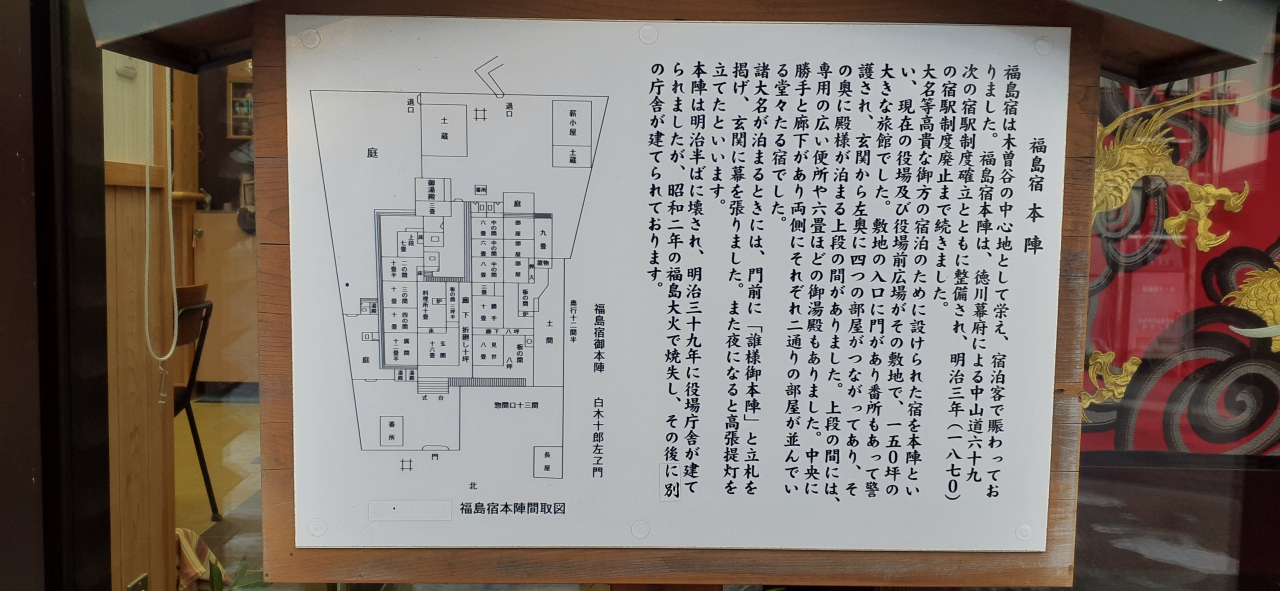 福島宿本陣
福島宿は木曽谷の中心地として栄え、宿泊客で賑わってお
りました。福島宿本陣は、徳川幕府による中山道六十九
次の宿駅制度確立とともに整備され、明治三年（一八七〇）
の宿駅制度廃止まで続きました。
大名等高貴な御方の宿泊のために設けられた宿を本陣とい
い、現在の役場及び役場前広場がその敷地で、一五〇坪の
大きな旅館でした。敷地の入口に門があり番所もあって警
護され、玄関から左奥に四つの部屋がつながってあり、そ
の奥に殿様が泊まる上段の間がありました。上段の間には、
専用の広い便所や六畳ほどの御湯殿もありました。中央に
勝手と廊下があり両側にそれぞれ二通りの部屋が並んでい
る堂々たる宿でした。
諸大名が泊まるときには、門前に「誰様御本陣」と立札を
掲げ、玄関に幕を張りました。また夜になると高張提灯を
立てたといいます。
本陣は明治半ばに壊され、明治三十九年に役場庁舎が建て
られましたが、昭和二年の福島大火で焼失し、その後に別
の庁舎が建てられております。
福島宿御本陣 白木十郎左ヱ門
奥行十二間半
退口
退口
土蔵
薪小屋
土蔵
庭
御湯殿三畳
庭
九畳
部屋
部屋
部屋
中の間
六畳
中の間
六畳
中の間
八畳
上段
七畳
二の間
十畳半
三の間
十畳
四の間
十畳
広間
十二畳半
料理所十畳
板の間
炉
廊下折廻し十坪
勝手
十畳
板の間
炉
土間
廊下八坪
見世
八畳
板の間
八坪
床
玄関
十六畳
湯殿
庭
湯殿
式台
惣間口十三間
番所
門
長屋
北
福島宿本陣間取図